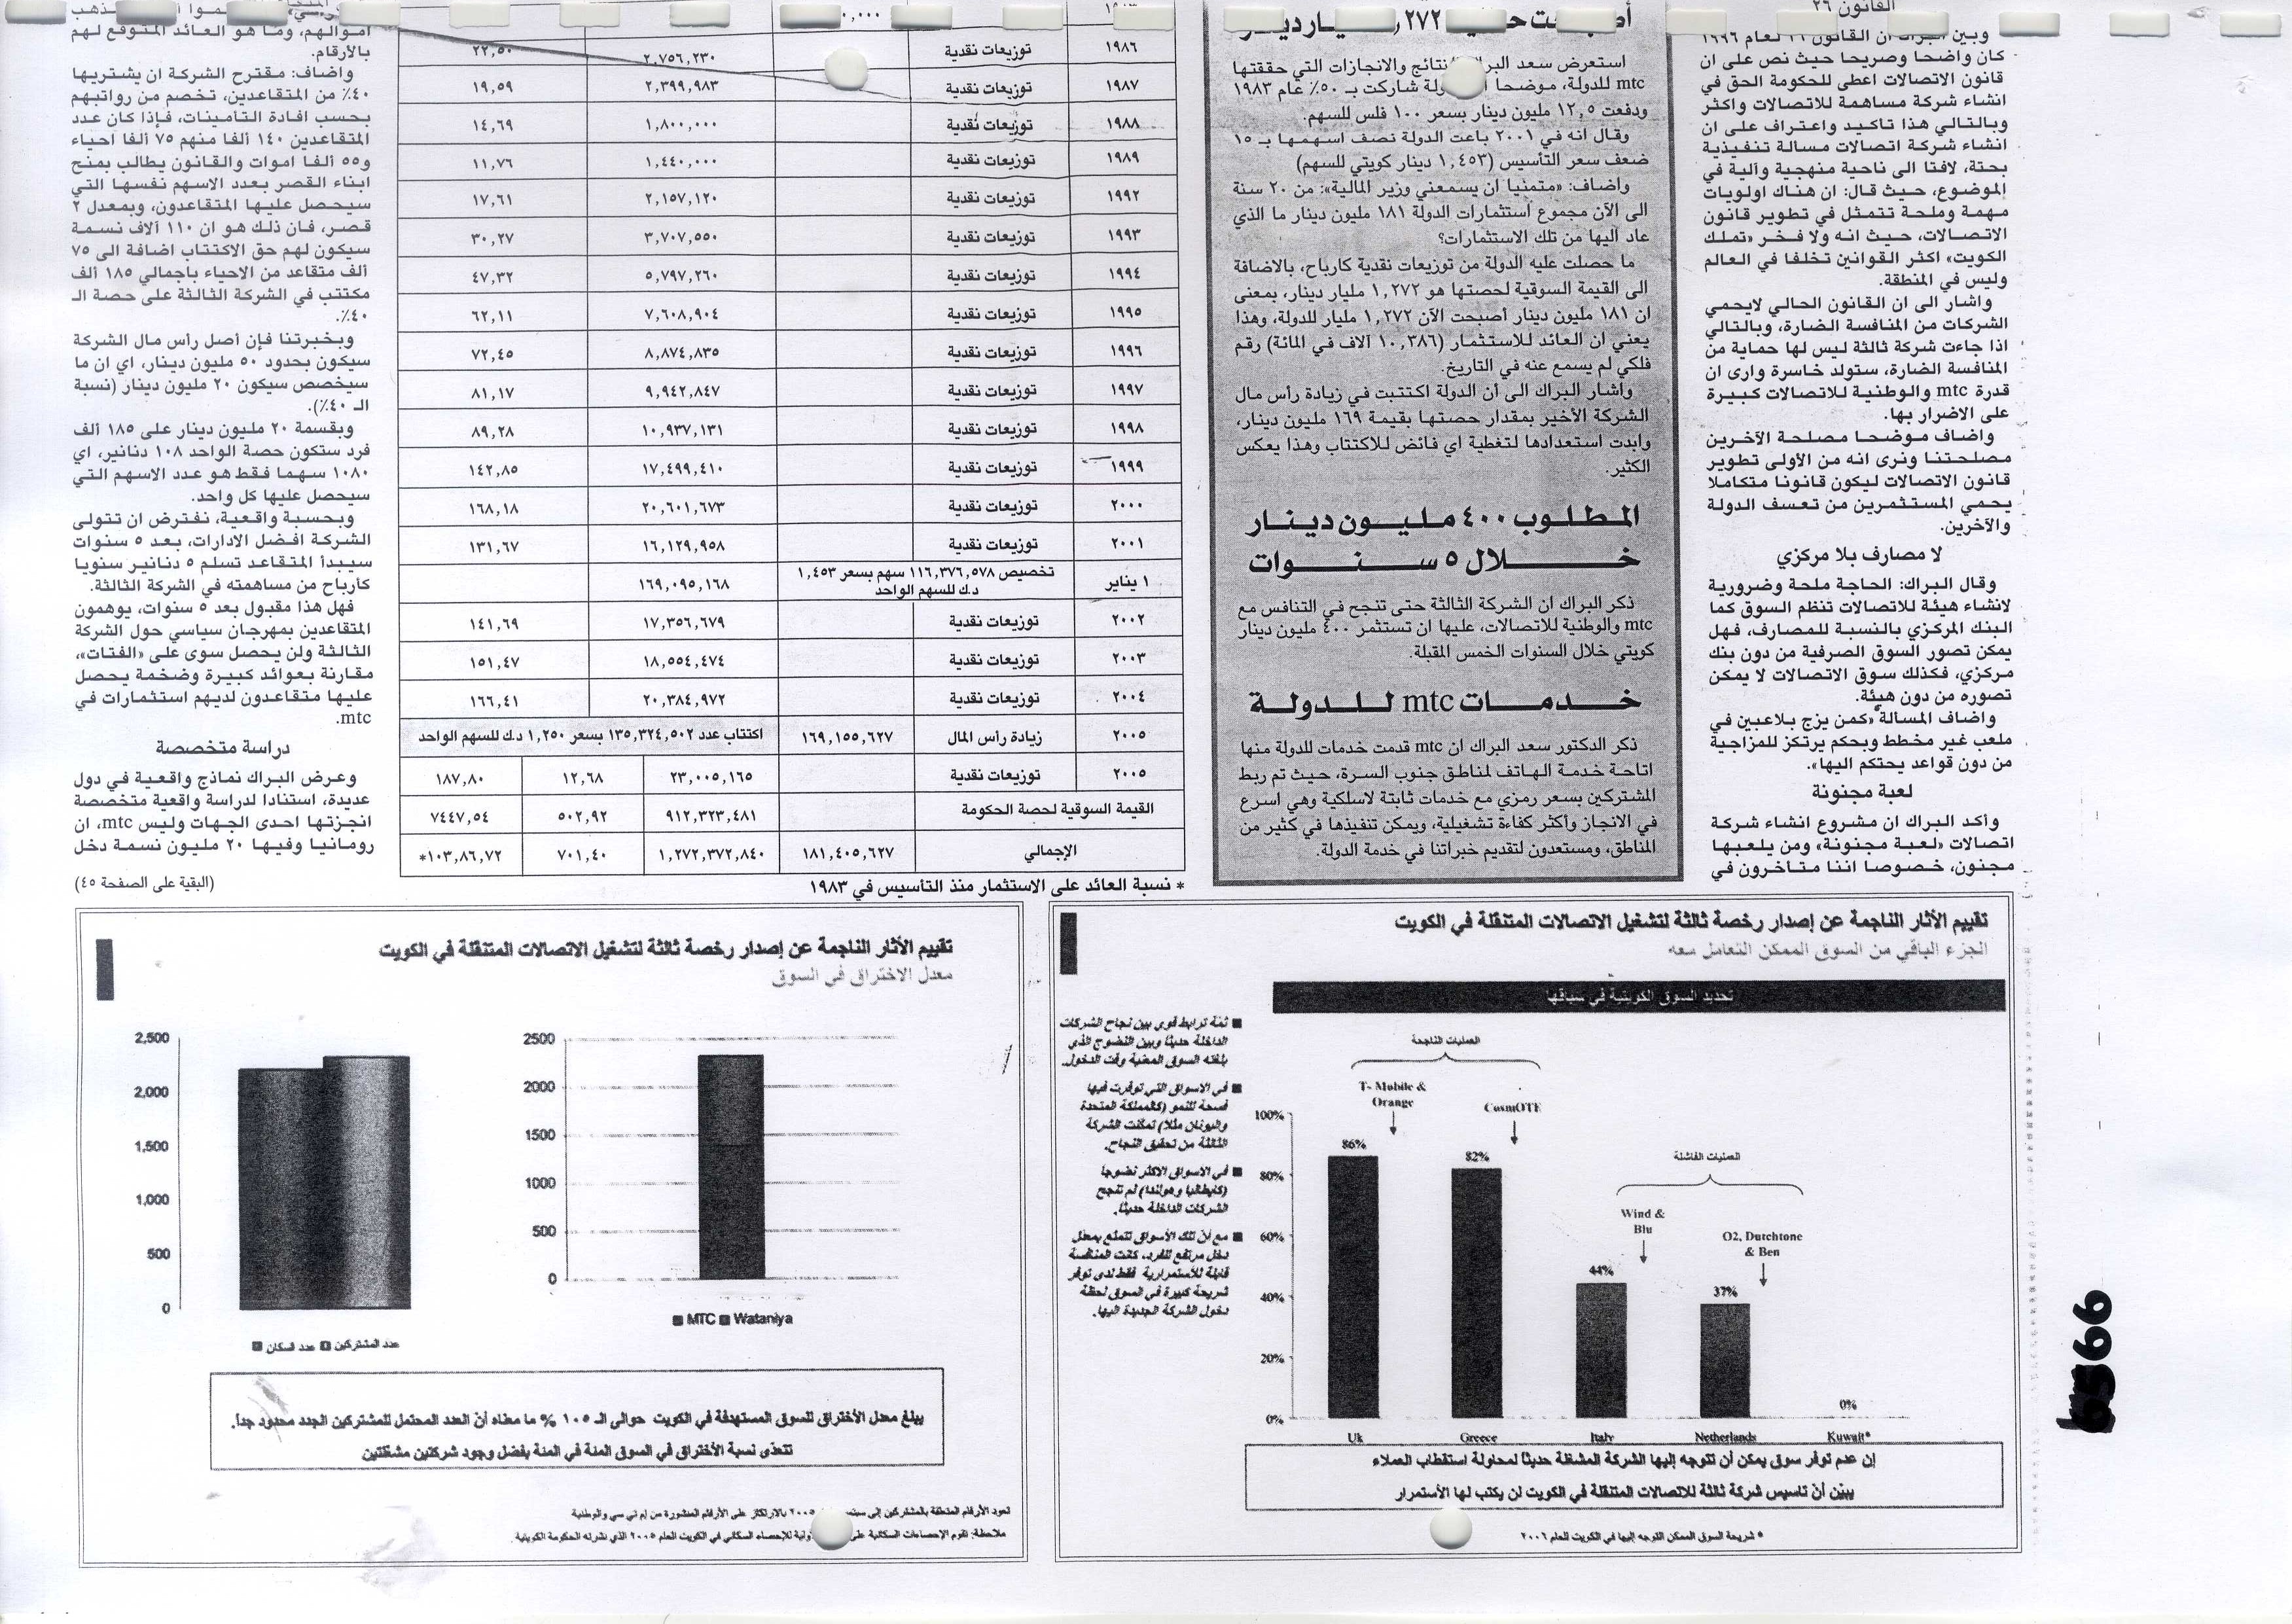 القانون ٢٦
وبين البراك ان القانون ٢٦ لعام ١٩٩٦
كان واضحا وصريحا حيث نص على ان
قانون الاتصالات اعطى للحكومة الحق في
انشاء شركة مساهمة للاتصالات واكثر
وبالتالي هذا تاكيد واعتراف على ان
انشاء شركة اتصالات مسالة تنفيذية
بحتة، لافتا الى ناحية منهجية وآلية في
الموضوع، حيث قال: ان هناك اولويات
مهمة وملحة تتمثل في تطوير قانون
الاتصالات، حيث انه ولا فخر «تملك
الكويت» اكثر القوانين تخلفا في العالم
وليس في المنطقة.
واشار الى ان القانون الحالي لايحمي
الشركات من المنافسة الضارة، وبالتالي
اذا جاءت شركة ثالثة ليس لها حماية من
المنافسة الضارة، ستولد خاسرة وارى ان
قدرة mtc والوطنية للاتصالات كبيرة
على الاضرار بها.
واضاف موضحا مصلحة الآخرين
مصلحتنا ونرى انه من الأولى تطوير
قانون الاتصالات ليكون قانونا متكاملا
يحمي المستثمرين من تعسف الدولة
والآخرين.
لا مصارف بلا مركزي
وقال البراك: الحاجة ملحة وضرورية
لانشاء هيئة للاتصالات تنظم السوق كما
البنك المركزي بالنسبة للمصارف، فهل
يمكن تصور السوق الصرفية من دون بنك
مركزي، فكذلك سوق الاتصالات لا يمكن
تصوره من دون هيئة.
واضاف المسالة «كمن يزج بلاعبين في
ملعب غير مخطط وبحكم يرتكز للمزاجية
من دون قواعد يحتكم اليها».
لعبة مجنونة
وأكد البراك ان مشروع انشاء شركة
اتصالات «لعبة مجنونة» ومن يلعبها
مجنون، خصوصا اننا متاخرون في
استعرض سعد البراك النتائج والانجازات التي حققتها
mtc للدولة، موضحا الدولة شاركت بـ ٥٠٪ عام ١٩٨٣
ودفعت ١٢,٥ مليون دينار بسعر ١٠٠ فلس للسهم.
وقال انه في ٢٠٠١ باعت الدولة نصف اسهمها بـ ١٥
ضعف سعر التأسيس (١,٤٥٣ دينار كويتي للسهم)
واضاف: «متمنيا ان يسمعني وزير المالية»: من ٢٠ سنة
الى الآن مجموع استثمارات الدولة ١٨١ مليون دينار ما الذي
عاد اليها من تلك الاستثمارات؟
ما حصلت عليه الدولة من توزيعات نقدية كارباح، بالاضافة
الى القيمة السوقية لحصتها هو ١,٢٧٢ مليار دينار، بمعنى
ان ١٨١ مليون دينار أصبحت الآن ١,٢٧٢ مليار للدولة، وهذا
يعني ان العائد للاستثمار (١٠,٣٨٦ آلاف في المائة) رقم
فلكي لم يسمع عنه في التاريخ.
واشار البراك الى أن الدولة اكتتبت في زيادة رأس مال
الشركة الأخير بمقدار حصتها بقيمة ١٦٩ مليون دينار،
وابدت استعدادها لتغطية اي فائض للاكتتاب وهذا يعكس
الكثير.
المطلوب ٤٠٠ مليون دينار
خلال ٥ سنوات
ذكر البراك ان الشركة الثالثة حتى تنجح في التنافس مع
mtc والوطنية للاتصالات، عليها ان تستثمر ٤٠٠ مليون دينار
كويتي خلال السنوات الخمس المقبلة.
خدمات mtc للدولة
ذكر الدكتور سعد البراك ان mtc قدمت خدمات للدولة منها
اتاحة خدمة الهاتف لمناطق جنوب السرة، حيث تم ربط
المشتركين بسعر رمزي مع خدمات ثابتة لاسلكية وهي اسرع
في الانجاز وأكثر كفاءة تشغيلية، ويمكن تنفيذها في كثير من
المناطق، ومستعدون لتقديم خبراتنا في خدمة الدولة.
١٩٨٦ توزيعات نقدية ٢,٧٥٦,٢٣٠ ٢٢,٥٠
١٩٨٧ توزيعات نقدية ٢,٣٩٩,٩٨٣ ١٩,٥٩
١٩٨٨ توزيعات نقدية ١,٨٠٠,٠٠٠ ١٤,٦٩
١٩٨٩ توزيعات نقدية ١,٤٤٠,٠٠٠ ١١,٧٦
١٩٩٢ توزيعات نقدية ٢,١٥٧,١٢٠ ١٧,٦١
١٩٩٣ توزيعات نقدية ٣,٧٠٧,٥٥٠ ٣٠,٢٧
١٩٩٤ توزيعات نقدية ٥,٧٩٧,٢٦٠ ٤٧,٣٢
١٩٩٥ توزيعات نقدية ٧,٦٠٨,٩٠٤ ٦٢,١١
١٩٩٦ توزيعات نقدية ٨,٨٧٤,٨٣٥ ٧٢,٤٥
١٩٩٧ توزيعات نقدية ٩,٩٤٢,٨٤٧ ٨١,١٧
١٩٩٨ توزيعات نقدية ١٠,٩٣٧,١٣١ ٨٩,٢٨
١٩٩٩ توزيعات نقدية ١٧,٤٩٩,٤١٠ ١٤٢,٨٥
٢٠٠٠ توزيعات نقدية ٢٠,٦٠١,٦٧٣ ١٦٨,١٨
٢٠٠١ توزيعات نقدية ١٦,١٢٩,٩٥٨ ١٣١,٦٧
١ يناير تخصيص ١١٦,٣٧٦,٥٧٨ سهم بسعر ١,٤٥٣ ١٦٩,٠٩٥,١٦٨
د.ك للسهم الواحد
٢٠٠٢ توزيعات نقدية ١٧,٣٥٦,٦٧٩ ١٤١,٦٩
٢٠٠٣ توزيعات نقدية ١٨,٥٥٤,٤٧٤ ١٥١,٤٧
٢٠٠٤ توزيعات نقدية ٢٠,٣٨٤,٩٧٢ ١٦٦,٤١
٢٠٠٥ زيادة رأس المال ١٦٩,١٥٥,٦٢٧ اكتتاب عدد ١٣٥,٣٢٤,٥٠٢ بسعر ١,٢٥٠ د.ك للسهم الواحد
٢٠٠٥ توزيعات نقدية ٢٣,٠٠٥,١٦٥ ١٢,٦٨ ١٨٧,٨٠
القيمة السوقية لحصة الحكومة ٩١٢,٣٢٣,٤٨١ ٥٠٢,٩٢ ٧٤٤٧,٥٤
الإجمالي ١٨١,٤٠٥,٦٢٧ ١,٢٧٢,٣٧٢,٨٤٠ ٧٠١,٤٠ ١٠٣,٨٦,٧٢*
* نسبة العائد على الاستثمار منذ التأسيس في ١٩٨٣
اموالهم، وما هو العائد المتوقع لهم
بالارقام.
واضاف: مقترح الشركة ان يشتريها
٤٠٪ من المتقاعدين، تخصم من رواتبهم
بحسب افادة التأمينات، فإذا كان عدد
المتقاعدين ١٤٠ الفا منهم ٧٥ ألفا احياء
و٥٥ ألفا اموات والقانون يطالب بمنح
ابناء القصر بعدد الاسهم نفسها التي
سيحصل عليها المتقاعدون، وبمعدل ٢
قصر، فان ذلك هو ان ١١٠ آلاف نسمة
سيكون لهم حق الاكتتاب اضافة الى ٧٥
ألف متقاعد من الاحياء باجمالي ١٨٥ ألف
مكتتب في الشركة الثالثة على حصة الـ
٤٠٪.
وبخبرتنا فإن أصل رأس مال الشركة
سيكون بحدود ٥٠ مليون دينار، اي ان ما
سيخصص سيكون ٢٠ مليون دينار (نسبة
الـ ٤٠٪).
وبقسمة ٢٠ مليون دينار على ١٨٥ ألف
فرد ستكون حصة الواحد ١٠٨ دنانير، اي
١٠٨٠ سهما فقط هو عدد الاسهم التي
سيحصل عليها كل واحد.
وبحسبة واقعية، نفترض ان تتولى
الشركة افضل الادارات، بعد ٥ سنوات
سيبدأ المتقاعد تسلم ٥ دنانير سنويا
كأرباح من مساهمته في الشركة الثالثة.
فهل هذا مقبول بعد ٥ سنوات، يوهمون
المتقاعدين بمهرجان سياسي حول الشركة
الثالثة ولن يحصل سوى على «الفتات»،
مقارنة بعوائد كبيرة وضخمة يحصل
عليها متقاعدون لديهم استثمارات في
mtc.
دراسة متخصصة
وعرض البراك نماذج واقعية في دول
عديدة، استنادا لدراسة واقعية متخصصة
انجزتها احدى الجهات وليس mtc، ان
رومانيا وفيها ٢٠ مليون نسمة دخل
(البقية على الصفحة ٤٥)
تقييم الأثار الناجمة عن إصدار رخصة ثالثة لتشغيل الاتصالات المتنقلة في الكويت
الجزء الباقي من السوق الممكن التعامل معه
تحديد السوق الكويتية في سياقها
ثمة ترابط قوي بين نجاح الشركات
الداخلة حديثا وبين النضوج الذي
بلغته السوق المعنية وقت الدخول.
في الاسواق التي توفرت فيها
فسحة للنمو (كالمملكة المتحدة
واليونان مثلا) تمكنت الشركة
الثالثة من تحقيق النجاح.
في الاسواق الاكثر نضوجا
(كايطاليا وهولندا) لم تنجح
الشركات الداخلة حديثا.
مع ان تلك الأسواق تتمتع بمعدل
دخل مرتفع للفرد، كانت المنافسة
قابلة للاستمرارية فقط لدى توفر
شريحة كبيرة في السوق لحظة
دخول الشركة الجديدة اليها.
العمليات الناجحة
T- Mobile &
Orange
CosmOTE
العمليات الفاشلة
Wind &
Blu
O2, Dutchtone
& Ben
100%
80%
60%
40%
20%
0%
86%
82%
44%
37%
0%
Uk Greece Italy Netherlands Kuwait*
إن عدم توفر سوق يمكن أن تتوجه إليها الشركة المشغلة حديثاً لمحاولة استقطاب العملاء
يبيّن أن تاسيس شركة ثالثة للاتصالات المتنقلة في الكويت لن يكتب لها الأستمرار
* شريحة السوق الممكن التوجه إليها في الكويت للعام ٢٠٠٦
تقييم الأثار الناجمة عن إصدار رخصة ثالثة لتشغيل الاتصالات المتنقلة في الكويت
معدل الاختراق في السوق
2500
2000
1500
1000
500
0
MTC Wataniya
2,500
2,000
1,500
1,000
500
0
عدد المشتركين عدد السكان
يبلغ معدل الأختراق للسوق المستهدفة في الكويت حوالى الـ ١٠٥ % ما معناه أن العدد المحتمل للمشتركين الجدد محدود جداً.
تتعدى نسبة الأختراق في السوق المئة في المئة بفضل وجود شركتين مشغّلتين
تعود الأرقام المتعلقة بالمشتركين إلى ٢٠٠٥ بالارتكاز على الأرقام المنشورة من إم تي سي والوطنية
ملاحظة: تقوم الإحصاءات السكانية على للإحصاء السكاني في الكويت للعام ٢٠٠٥ الذي نشرته الحكومة الكويتية.